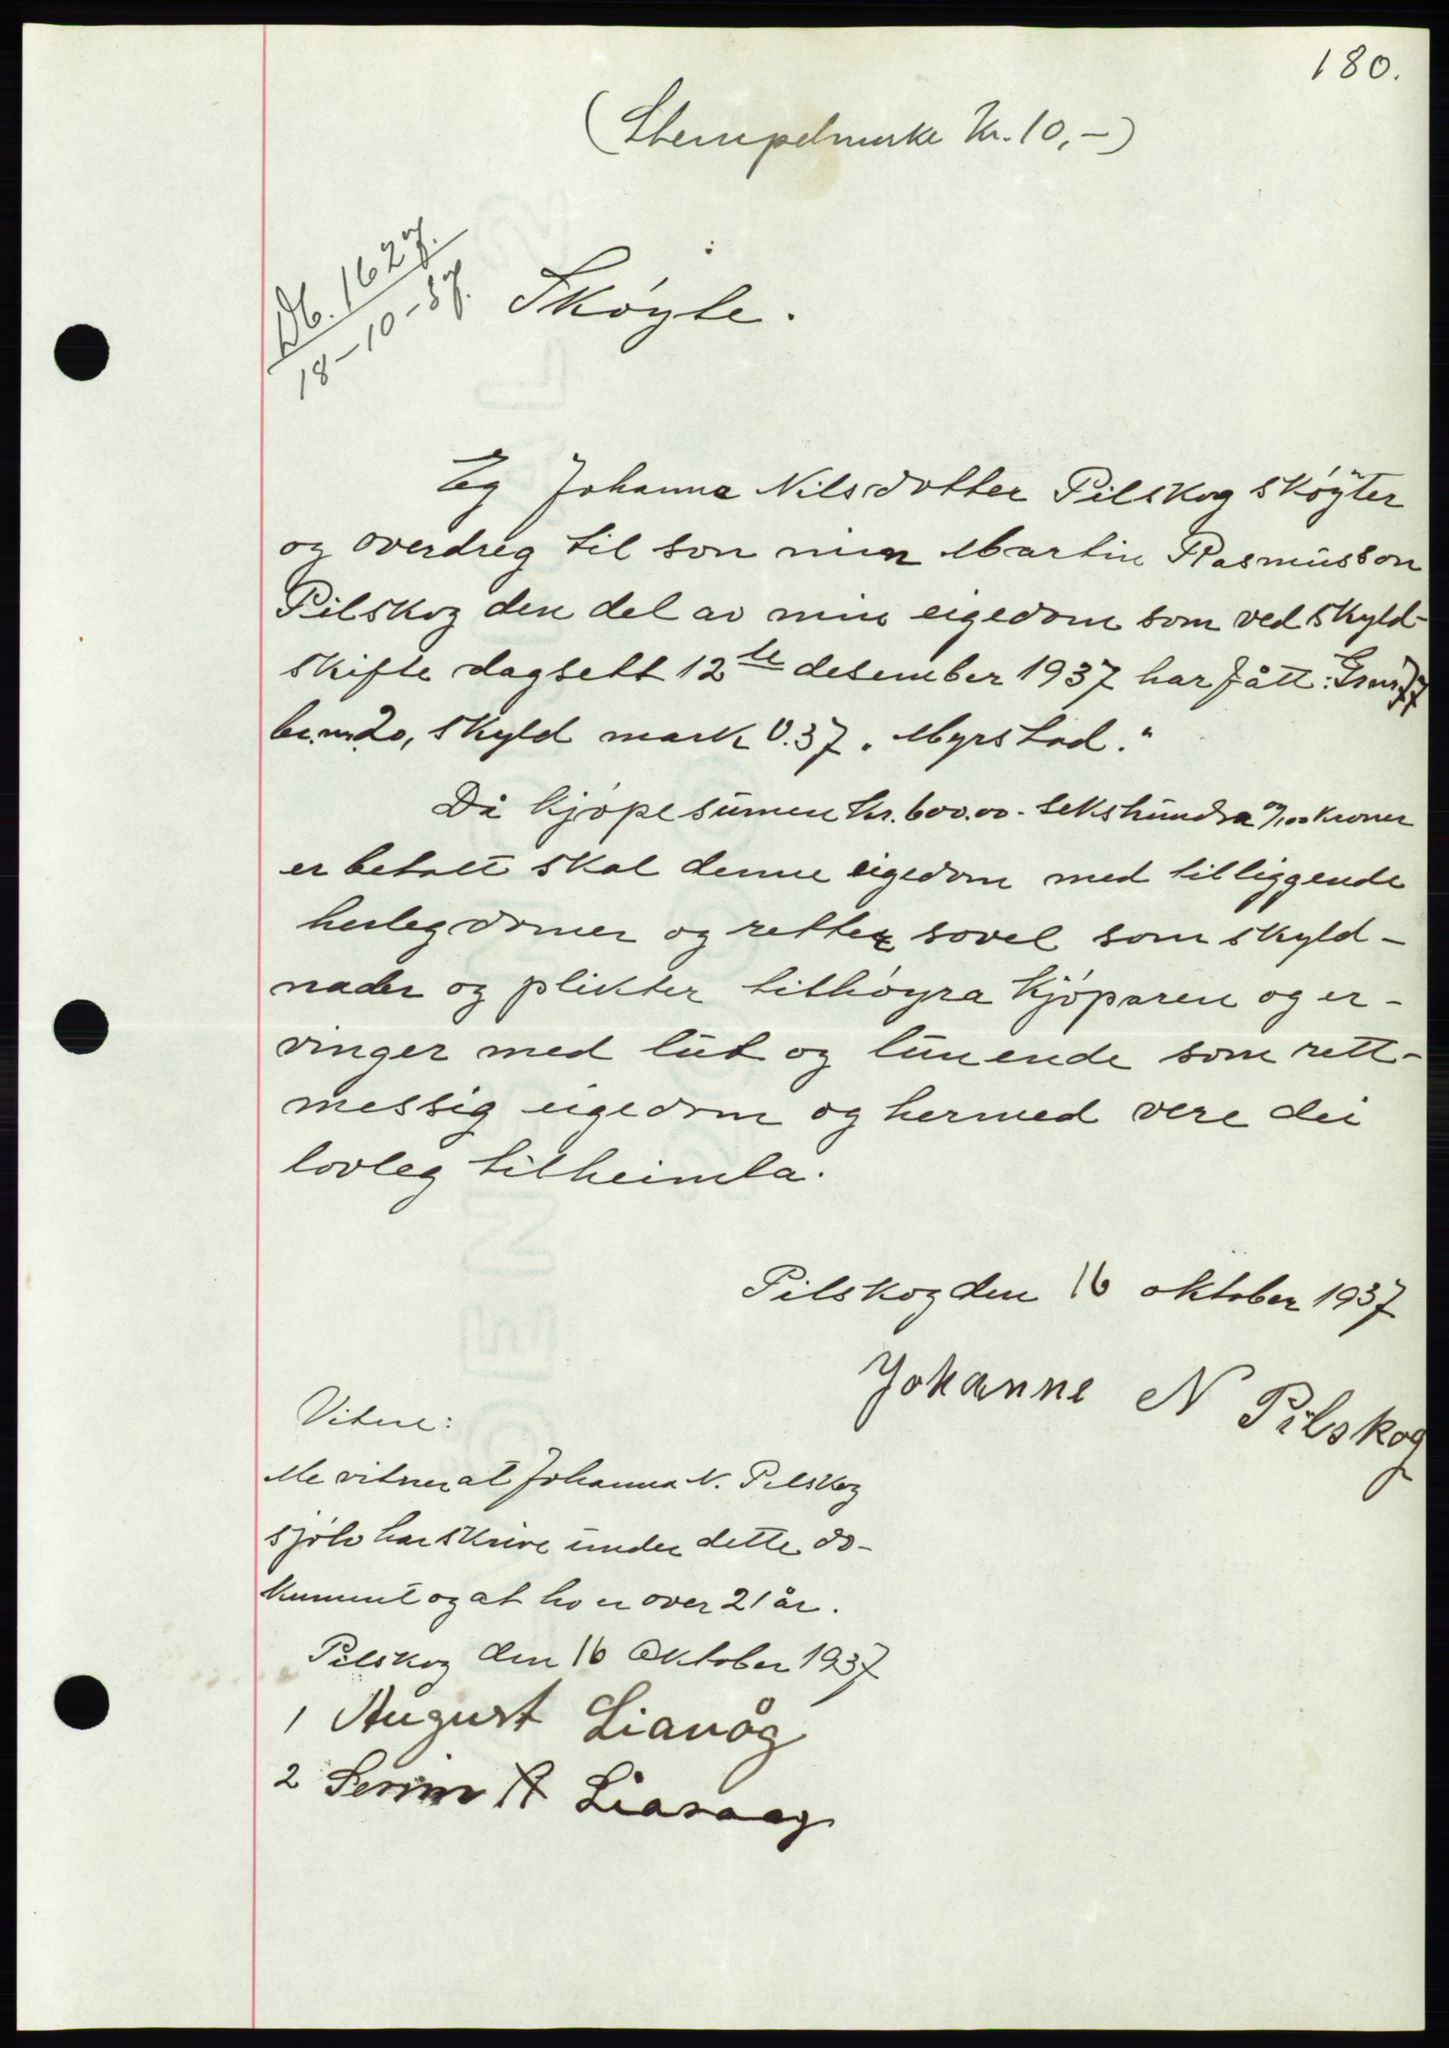 180.
(Stempelmerke Kr. 10,-)
Db. 1627.
18-10-37.
Skøyte.
Eg Johanna Nilsdotter Pilskog skøyter
og overdreg til son min Martin Rasmusson
Pilskog den del av min eigedom som ved skyld-
skifte dagsett 12te desember 1937 har fått: Gnr. 77
br.nr. 20, skyld mark 0.37 „Myrstad.“
Då kjøpesumen kr. 600.00 - sekshundra 0/100 kroner
er betalt skal denne eigedom med tilliggende
herlegdomer og retter sovel som skyld-
nader og plikter tilhøyra kjøparen og er-
vinger med lut og lunende som rett-
messig eigedom og hermed vere dei
lovleg tilheimla.
Pilskog den 16 oktober 1937
Johanne N Pilskog
Vitne:
Me vitner at Johanna N. Pilskog
sjølv har skrive under dette do-
kument og at ho er over 21 år.
Pilskog den 16 Oktober 1937
1 August Liavåg
2 A Liavaag